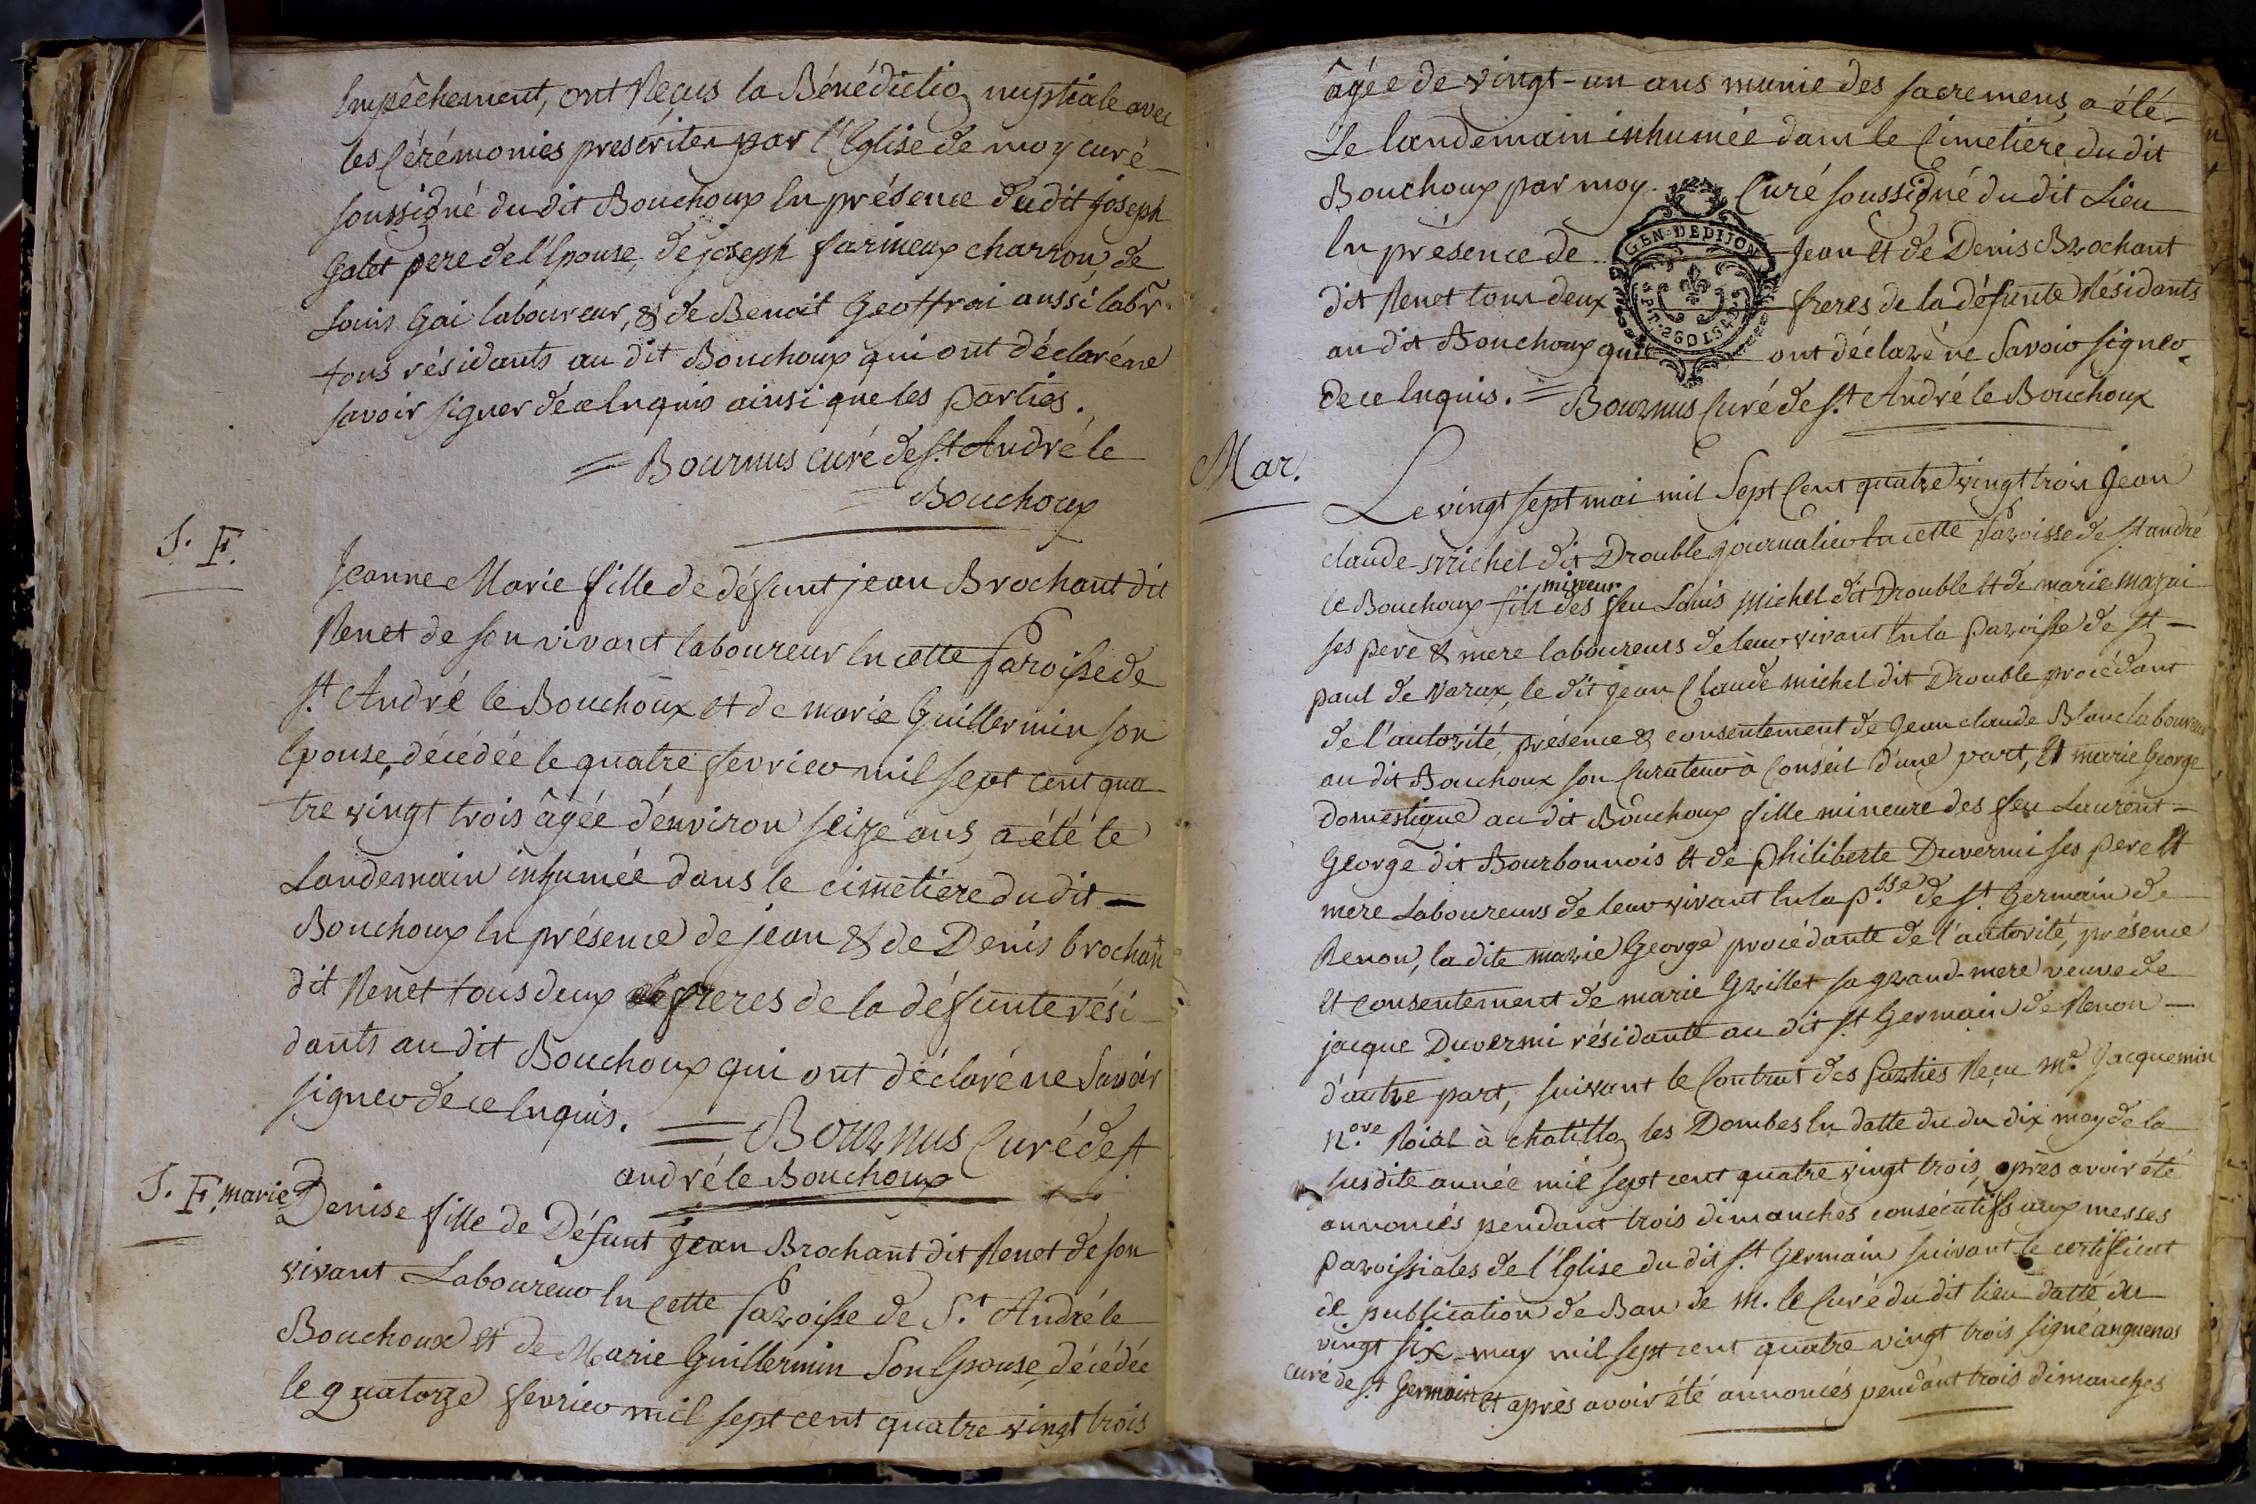 Empêchement, ont Reçus la Bénédictio nuptiale avec
les Cérémonies prescrites par l'Eglise de moy curé
soussigné du dit Bouchoux En présence dudit joseph
Galet pere de l'Epouse, de joseph farineux charron, de
Louis Gai laboureur, & de Benoit Geoffrai aussi labr.
tous résidants au dit Bouchoux qui ont déclaré ne
savoir signer dece Enquis ainsi que les parties.
= Bournus curé de St. André le
= Bouchoux
S. F.
Jeanne Marie fille de défunt jean Brochant dit
Renet de son vivant laboureur En cette Paroisse de
St. André le Bouchoux et de marie Guillermin son
Epouse, décédée le quatre fevrier mil sept cent qua-
tre vingt trois âgée d'environ seize ans, a été le
Landemain inhumée dans le cimetiere du dit -
Bouchoux En présence de jean & de Denis brochant
dit Renet tous deux freres de la défunte rési-
dants au dit Bouchoux qui ont déclaré ne Savoir
signer dece Enquis. = Bournus Curé de St
andré le Bouchoux
S. F. marie
Denise fille de Défunt Jean Brochant dit Renet de son
vivant Laboureur En Cette Paroisse de St. André le
Bouchoux et de Marie Guillermin Son Epouse, décédée
le quatorze fevrier mil sept cent quatre vingt trois
âgée de vingt-un ans munie des sacremens, a été
Le landemain inhumée dans le Cimetiere du dit
Bouchoux par moy. Curé soussigné du dit Lieu
En présence de Jean et de Denis Brochant
dit Renet tous deux freres de la défunte Résidants
au dit Bouchoux qui ont déclaré ne Savoir signer
de ce Enquis. = Bournus Curé de St. André le Bouchoux
GEN. DE DIJON
Mar.
Le vingt sept mai mil Sept Cent quatre vingt trois Jean
claude Michel dit Drouble journalier En cette Paroisse de St andré
mineur
le Bouchoux fils des feu Louis Michel dit Drouble et de marie mazai
ses pere & mere laboureurs de leur vivant En la paroisse de St -
paul de Varax, le dit Jean Claude Michel dit Drouble procédant
de l'autorité, présence & consentement de Jean claude Blanc laboureur
au dit Bouchoux son Curateur à Conseil d'une part, Et marie George
Domestique au dit Bouchoux fille mineure des feu Laurent -
George dit Bourbonnois et de philiberte Duvermi ses pere et
mere Laboureurs de leur vivant En la psse. de St. Germain de
Renon, la dite marie George procédante de l'autorité, présence
et consentement de marie Grillet sa grand-mere veuve de
jacque Duvermi résidante au dit St. Germain de Renon -
d'autre part, suivant le Contrat des Parties Reçu Me. Jacquemin
Nore. Roial à chatillo les Dombes En datte du du dix may de la
susdite année mil sept cent quatre vingt trois, après avoir été
annoncés pendant trois dimanches consécutifs aux messes
paroissiales de l'Eglise du dit St. Germain suivant le certificat
de publication de Ban de M. le Curé du dit lieu datté du
vingt six may mil sept cent quatre vingt trois signé anguenos
curé de St. Germain et après avoir été annoncés pendant trois dimanches